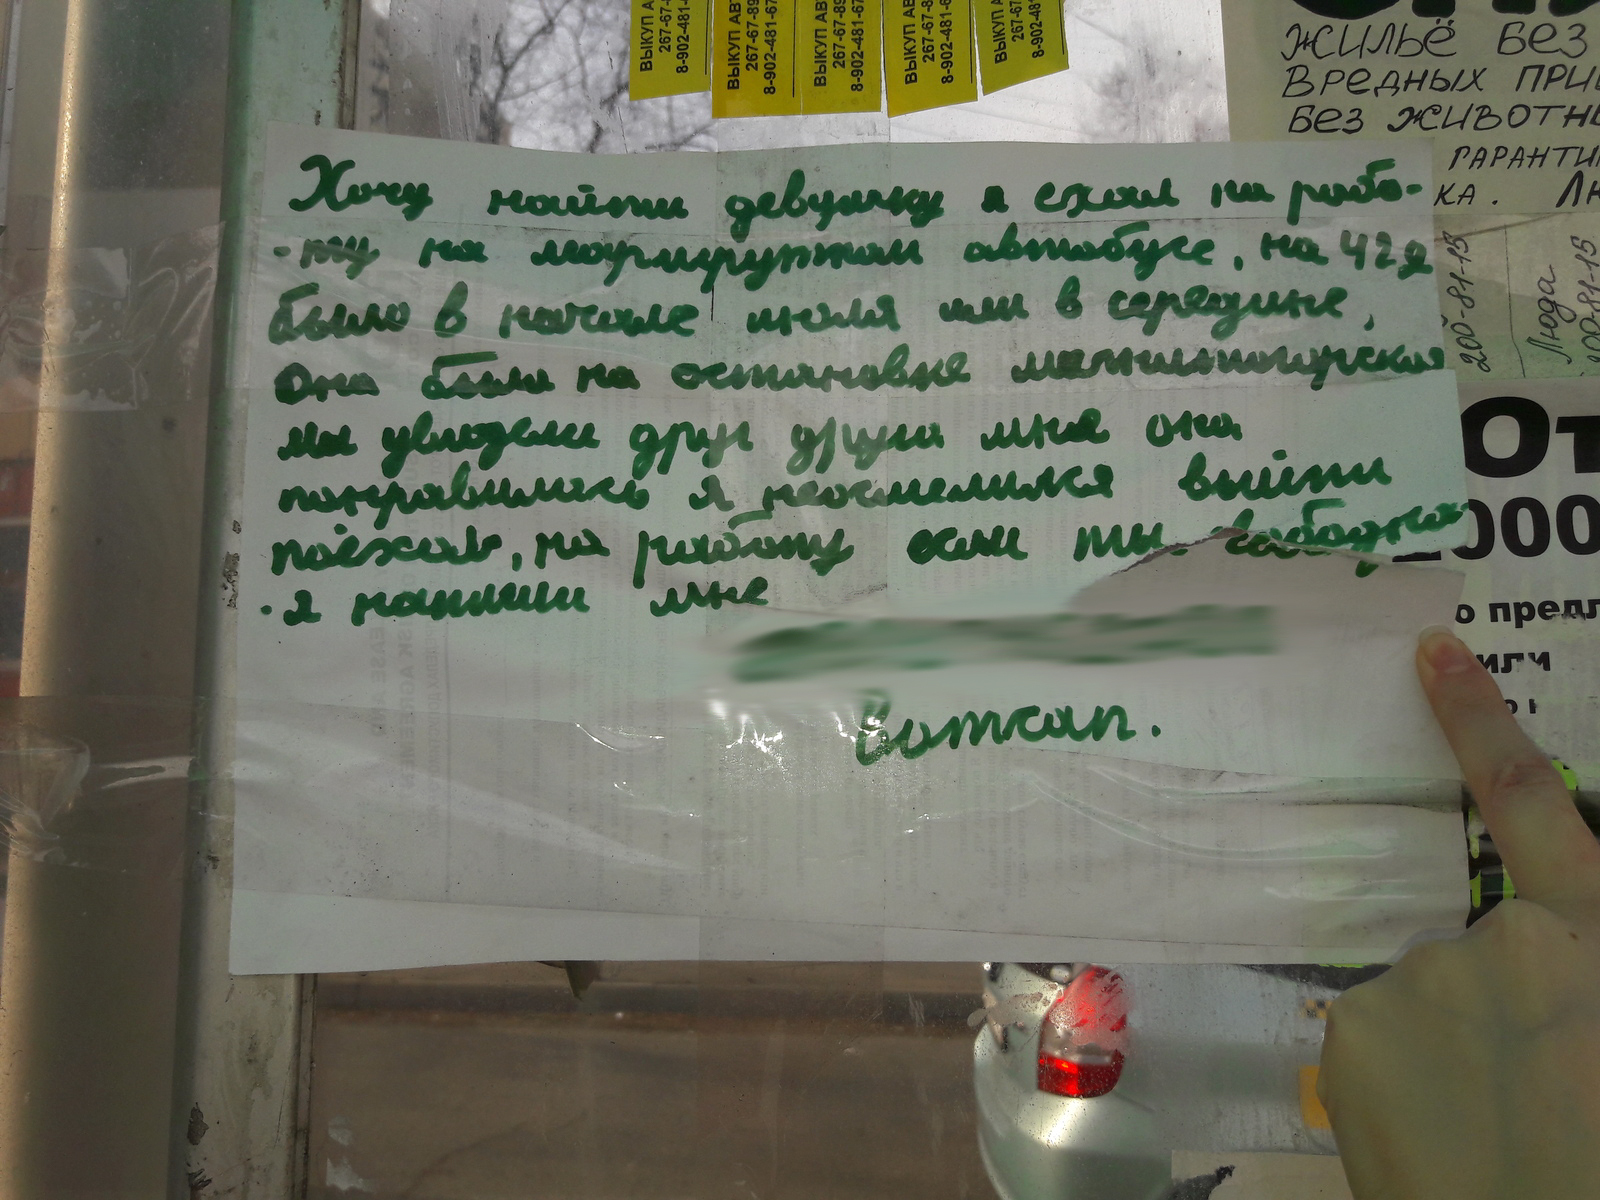 ВЫКУП АВ
267-67-89
8-902-481-67
ВЫКУП АВ
267-67-89
8-902-481-67
ВЫКУП АВ
267-67-89
8-902-481-67
ВЫКУП АВ
267-67-8
8-902-481-6
ВЫКУП
267-67
8-902-48
ЖИЛЬЁ БЕЗ
ВРЕДНЫХ ПРИ
БЕЗ ЖИВОТН
ГАРАНТИ
КА. Лю
200-81-15
Люда
200-81-15
Хочу найти девушку я ехал на рабо-
-ту на маршрутном автобусе, на 42
было в начале июля или в середине,
Она была на остановке магнитогорская
мы увидели друг друга мне она
понравилась я неосмелился выйти
поехал, на работу если ты свободна
я напиши мне
Ватсап.
От
2000
о предл
или